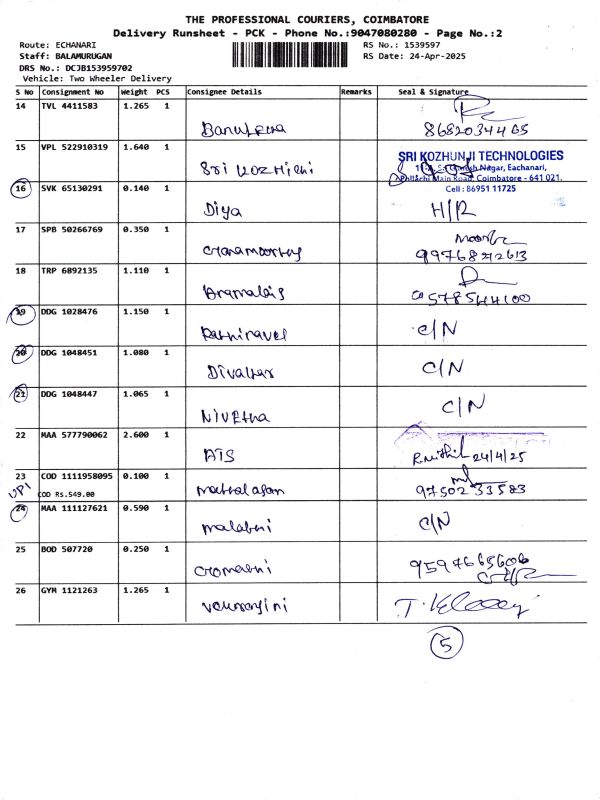 THE PROFESSIONAL COURIERS, COIMBATORE
Delivery Runsheet - PCK - Phone No.:9047080280 - Page No.:2
Route: ECHANARI RS No.: 1539597
Staff: BALAMURUGAN RS Date: 24-Apr-2025
DRS No.: DCJB153959702
Vehicle: Two Wheeler Delivery
S No Consignment No Weight PCS Consignee Details Remarks Seal & Signature
14 TVL 4411583 1.265 1
15 VPL 522910319 1.640 1
SRI KOZHUNJI TECHNOLOGIES
Nagar, Eachanari,
Pollachi Main Road, Coimbatore - 641 021.
Cell: 86951 11725
16 SVK 65130291 0.140 1
Diya H/R
17 SPB 50266769 0.350 1
18 TRP 6892135 1.110 1
19 DDG 1028476 1.150 1
Kathiravel C/N
20 DDG 1048451 1.080 1
C/N
21 DDG 1048447 1.065 1
Nivetha C/N
22 MAA 577790062 2.600 1
24/4/25
23 COD 1111958095 0.100 1
UPI COD Rs.549.00
9750233583
24 MAA 111127621 0.590 1
C/N
25 BOD 507720 0.250 1
26 GYM 1121263 1.265 1
5